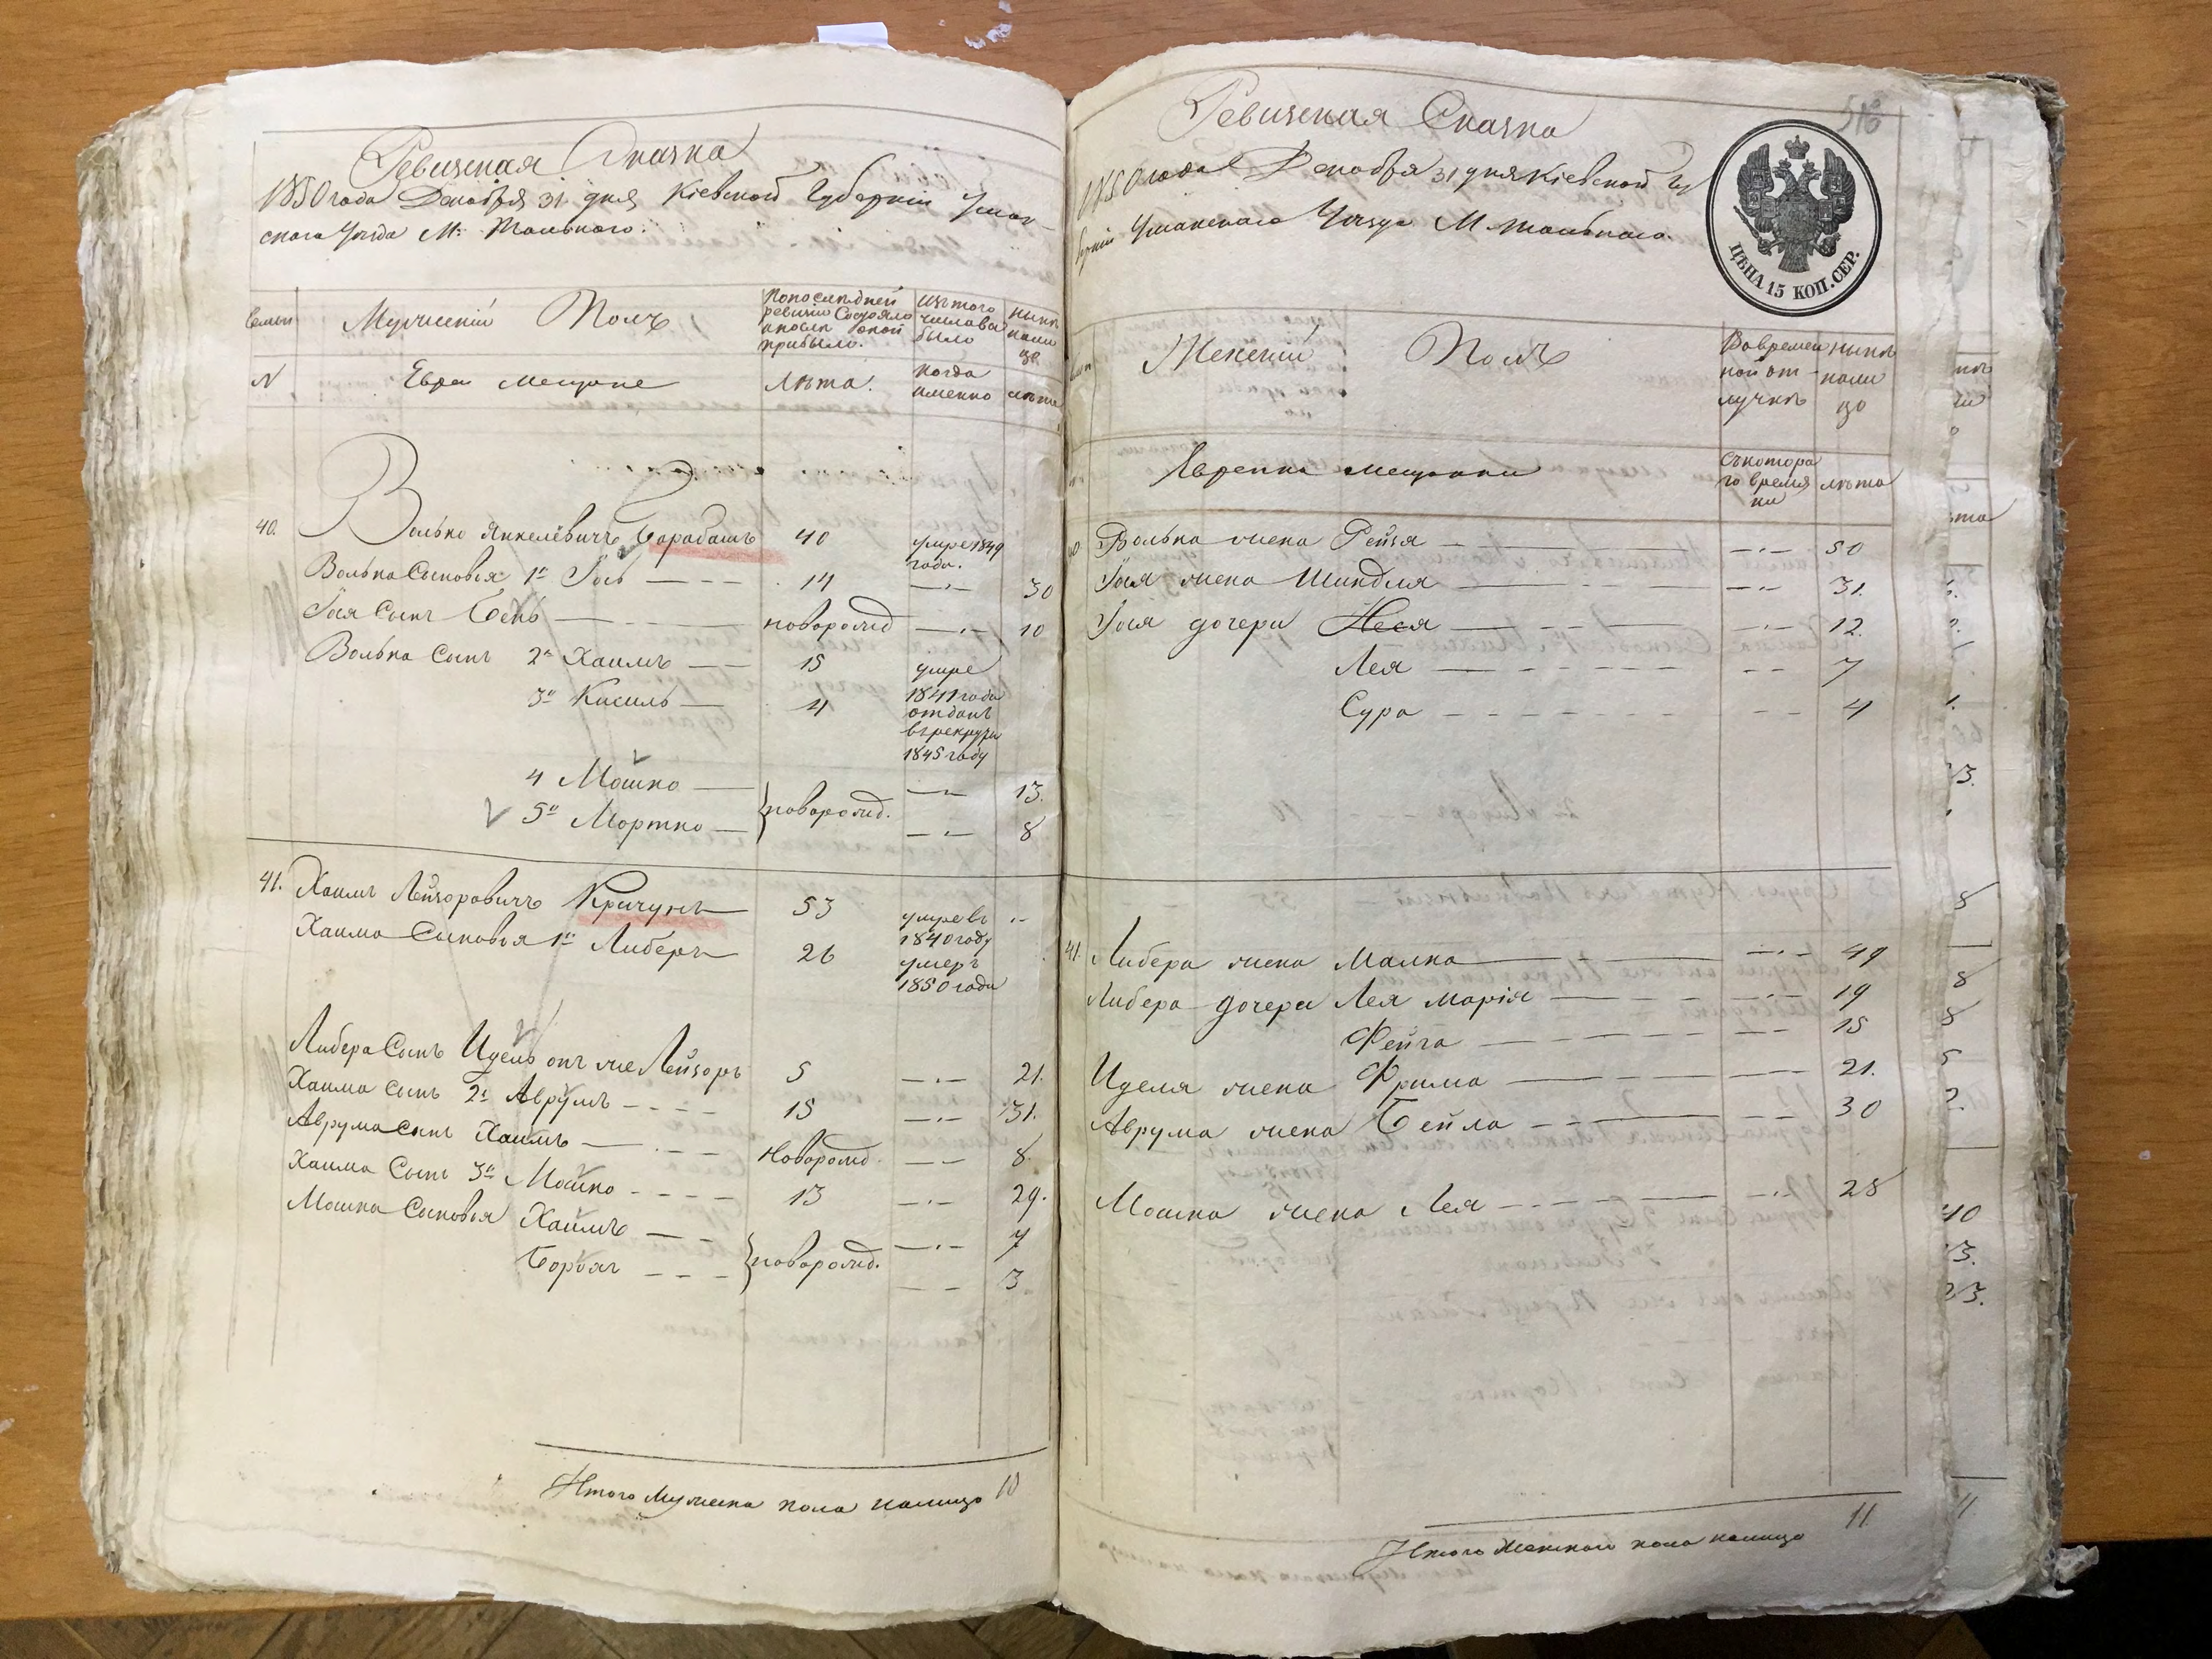 Ревизская Сказка
1850 года Декабря 31 дня Кіевской Губерніи Уман-
скаго Уезда М: Тальнаго.
Семьи
Мужескій Полъ
По последней
ревизіи Состояло
и после оной
прибыло.
Изъ того
числа вы
было
Ныне
нали
цо
N
Евреи мещане
Лета.
Когда
именно
лета
40. Волько Янкелёвичъ Барабашъ 40 умре 1849
года.
Волька Сыновья 1й Гой 14 30
Гоя Сынъ Бень новорожд 10
Волька Сынъ 2й Хаимъ 15 умре
1841 года
3й Кисиль 4 отданъ
в рекруты
1845 году
4 Мошко 13.
новорожд.
5й Мортко 8
41. Хаимъ Лейзоровичъ Кричунъ 53 умре въ
1840 году
Хаима Сыновья 1й Либеръ 26 умеръ
1850 года
Либера Сынъ Идель онъ же Лейзоръ 5 21.
Хаима Сынъ 2й Аврумъ 15 31.
Аврума Сынъ Хаимъ Новорожд. 8.
Хаима Сынъ 3й Мошко 13 29.
Мошка Сыновья Хаимъ 7
новорожд.
3
Итого Мужеска пола налицо 10
Ревизская Сказка
1850 года Декабря 31 дня Кіевской Гу
берніи Уманскаго Уезда М. Тальнаго.
ЦѢНА 15 КОП. СЕР.
Женскій Полъ
Во времен
ной от
лучке
Ныне
нали
цо
Еврейки мещанки
Съ котора
го време
ни
лета
Волька жена Рейзя 50
Гоя жена Шиндля 31.
Гоя дочери Неся 12.
Лея 7
Сура 4
41. Либера жена Малка 49
Либера дочери Лея Марія 19
Фейга 15
Иделя жена Фрима 21.
Аврума жена Бейла 30
Мошка жена Лея 28
Итого Женскаго пола налицо 11